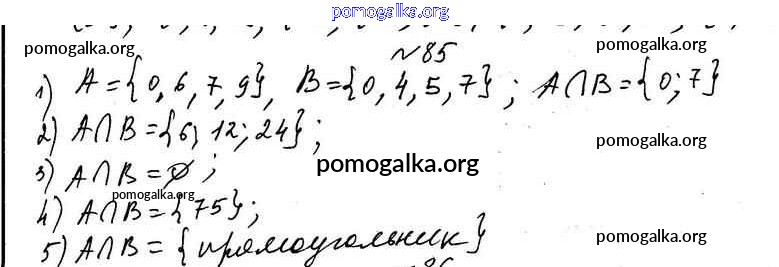 pomogalka.org
№85
pomogalka.org pomogalka.org
1) A={0,6,7,9}, B={0,4,5,7}; A∩B={0;7}
2) A∩B={6; 12; 24};
pomogalka.org
3) A∩B=∅;
pomogalka.org
pomogalka.org
4) A∩B={75};
5) A∩B={прямоугольник}
pomogalka.org